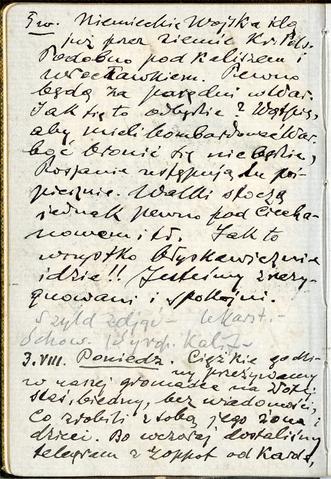 Ew. Niemieckie Wojska idą
już przez ziemie Kr. Pols.
Podobno pod Kaliszem i
Włocławkiem. Pewno
będą za parę dni w War.
Jak się to odbędzie? Wątpię,
aby mieli bombardować War.
boć bronić się nie będzie,
Rosjanie ustępują tu
piesznie. Walki stoczą
jednak pewno pod Ciecha-
nowem itd. Jak to
wszystko błyskawicznie
idzie!! Jesteśmy zrezy-
gnowani i spokojni.
Szyld zdjęć –
3.VIII. Poniedz. Ciężkie godzi-
ny przeżywamy
w naszej gromadce na
biedny, bez wiadomości,
co zrobili z sobą jego żona i
dzieci. Bo wczoraj dostaliśmy
telegram z Zoppot od Karola,